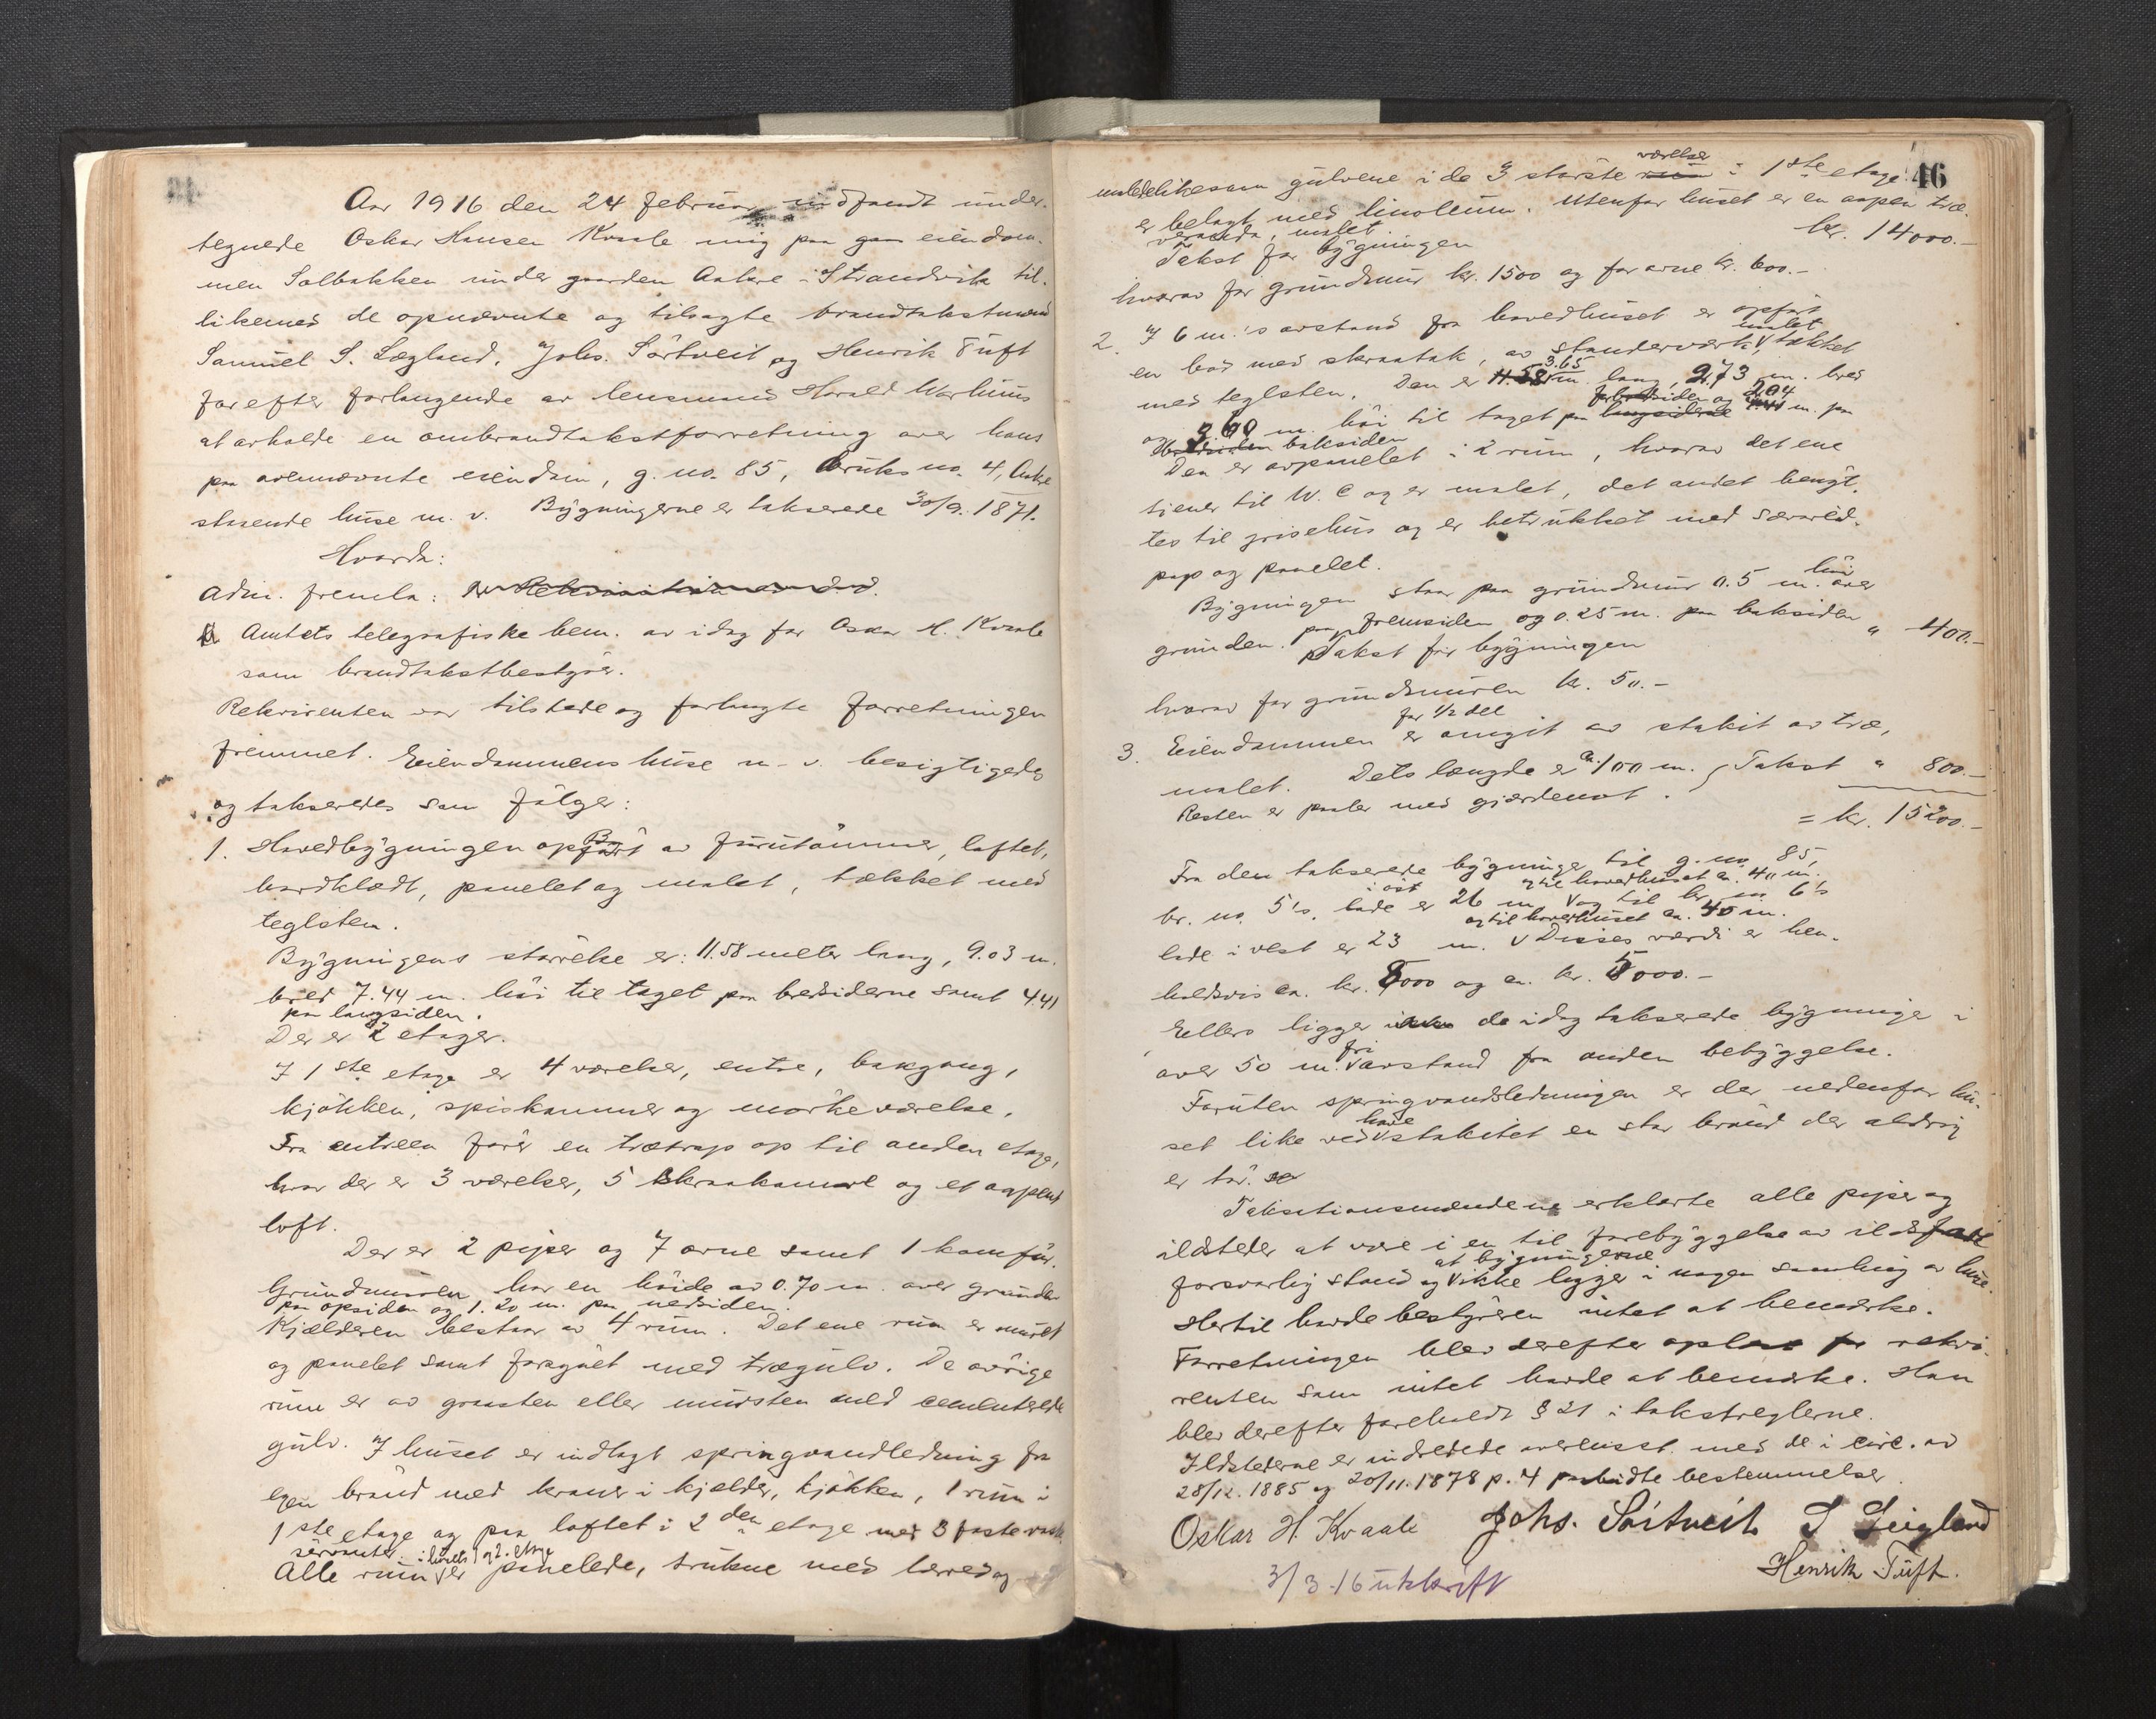 Aar 1916 den 24 februar indfandt under-
tegnede Oskar Hansen Kvaale mig paa eiendom-
men Solbakken under gaarden Aakre i Strandvik til-
likemed de opnævnte og tilsagte brandtakstmænd
Samuel S. Lægland, Johs. Sörtveit og Henrik Tuft
for efter forlangende av lensmand Harald Warhuus
at avholde en ombrandtakstforretning over hans
paa ovennævnte eiendom, g. no. 85, bruks no. 4, Aakre
staaende huse m. v. Bygningerne er takserede 30/9. 1871.
Hvorda:
Adm. fremla:
Amtets telegrafiske bem. av idag for Oskar H. Kvaale
som brandtakstbestyrer.
Rekvirenten var tilstede og forlangte forretningen
fremmet. Eiendommens huse m. v. besigtigedes
og takseredes som fölger:
1. Hovedbygningen opfört av furutömmer, loftet,
bordklædt, panelet og malet, tækket med
teglsten.
Bygningens störrelse er: 11.58 meter lang, 9.03 m.
bred 7.44 m. höi til taget paa bredsiderne samt 4.41
paa langsiden.
Der er 2 etager.
I 1ste etage er 4 værelser, entre, bakgang,
kjökken, spiskammer og mörkeværelse.
Fra entreen förer en trætrap op til anden etage,
hvor der er 3 værelser, 5 skraakammere og et aapent
loft.
Der er 2 piper og 7 ovne samt 1 komfür.
Grundmuren har en höide av 0.70 m. over grunden
paa opsiden og 1.20 m. paa nedsiden.
Kjælderen bestaar av 4 rum. Det ene rum er muret
og panelet samt forsynet med trægulv. De övrige
rum er av graasten eller mursten med cementerede
gulv. I huset er indlagt springvandledning fra
egen brönd med kraner i kjelder, kjökken, 1 rum i
1ste etage og paa loftet i 2den etage med 3 faste vask-
servanter
Alle rum i husets 1 og 2. etage er panelede, trukne med lærred og
46
malede likesom gulvene i de 3 störste værelser i 1ste etage
er belagt med linoleum. Utenfor huset er en aapen træ-
veranda, malet.
Takst for bygningen kr. 14000.-
hvorav for grundmur kr. 1500 og for ovne kr. 600.-
2. I 6 m.'s avstand fra hovedhuset er opfört
en bod med skraatak, av standerværk, malet, tækket
med teglsten. Den er 3.65 m. lang, 2.73 m. bred
og 3.60 m. höi til taget paa forsiden og 2.04 m. paa
baksiden
Den er avpanelet i 2 rum, hvorav det ene
tjener til W. C og er malet, det andet benyt-
tes til grisehus og er betrukket med
pap og panelet.
Bygningen staar paa grundmur 0.5 m. höi over
grunden paa fremsiden og 0.25 m. paa baksiden
Takst for bygningen " 400.-
hvorav for grundmuren kr. 50.-
3. Eiendommen er for 1/2 del omgit av stakit av træ,
malet. Dets længde er ca. 100 m. } Takst " 800.-
Resten er paaler med gjærdenot.
= kr. 15200.-
Fra den takserede bygninge til g. no. 85,
br. no. 5's lade i öst er 26 m. og til hovedhuset ca. 40 m. og til br. no. 6's
lade i vest er 23 m. og til hovedhuset ca. 45 m. Disses værdi er hen-
holdsvis ca. kr. 8000 og ca. kr. 5000.-
Eellers ligger de idag takserede bygninge i
over 50 m. fri avstand fra anden bebyggelse.
Foruten springvandsledningen er der nedenfor hu-
set like ved have stakitet en stor brönd der aldrig
er tör.
Taksationsmændene erklærte alle piper og
ildsteder at være i en til forebyggelse av ildsfare
forsvarlig stand og at bygningerne ikke ligger i nogen samling av huse.
Hertil havde bestyreren intet at bemærke.
Forretningen blev derefter oplæst for rekvi-
renten som intet havde at bemærke. Han
blev derefter foreholdt § 21 i takstreglerne.
Ildstederne er indredede overensst. med de i circ. av
28/12. 1885 og 20/11. 1878 p. 4 paabudte bestemmelser.
Oskar H. Kvaale Johs. Sörtveit S Leigland
Henrik Tuft.
3/3-16 utskrift